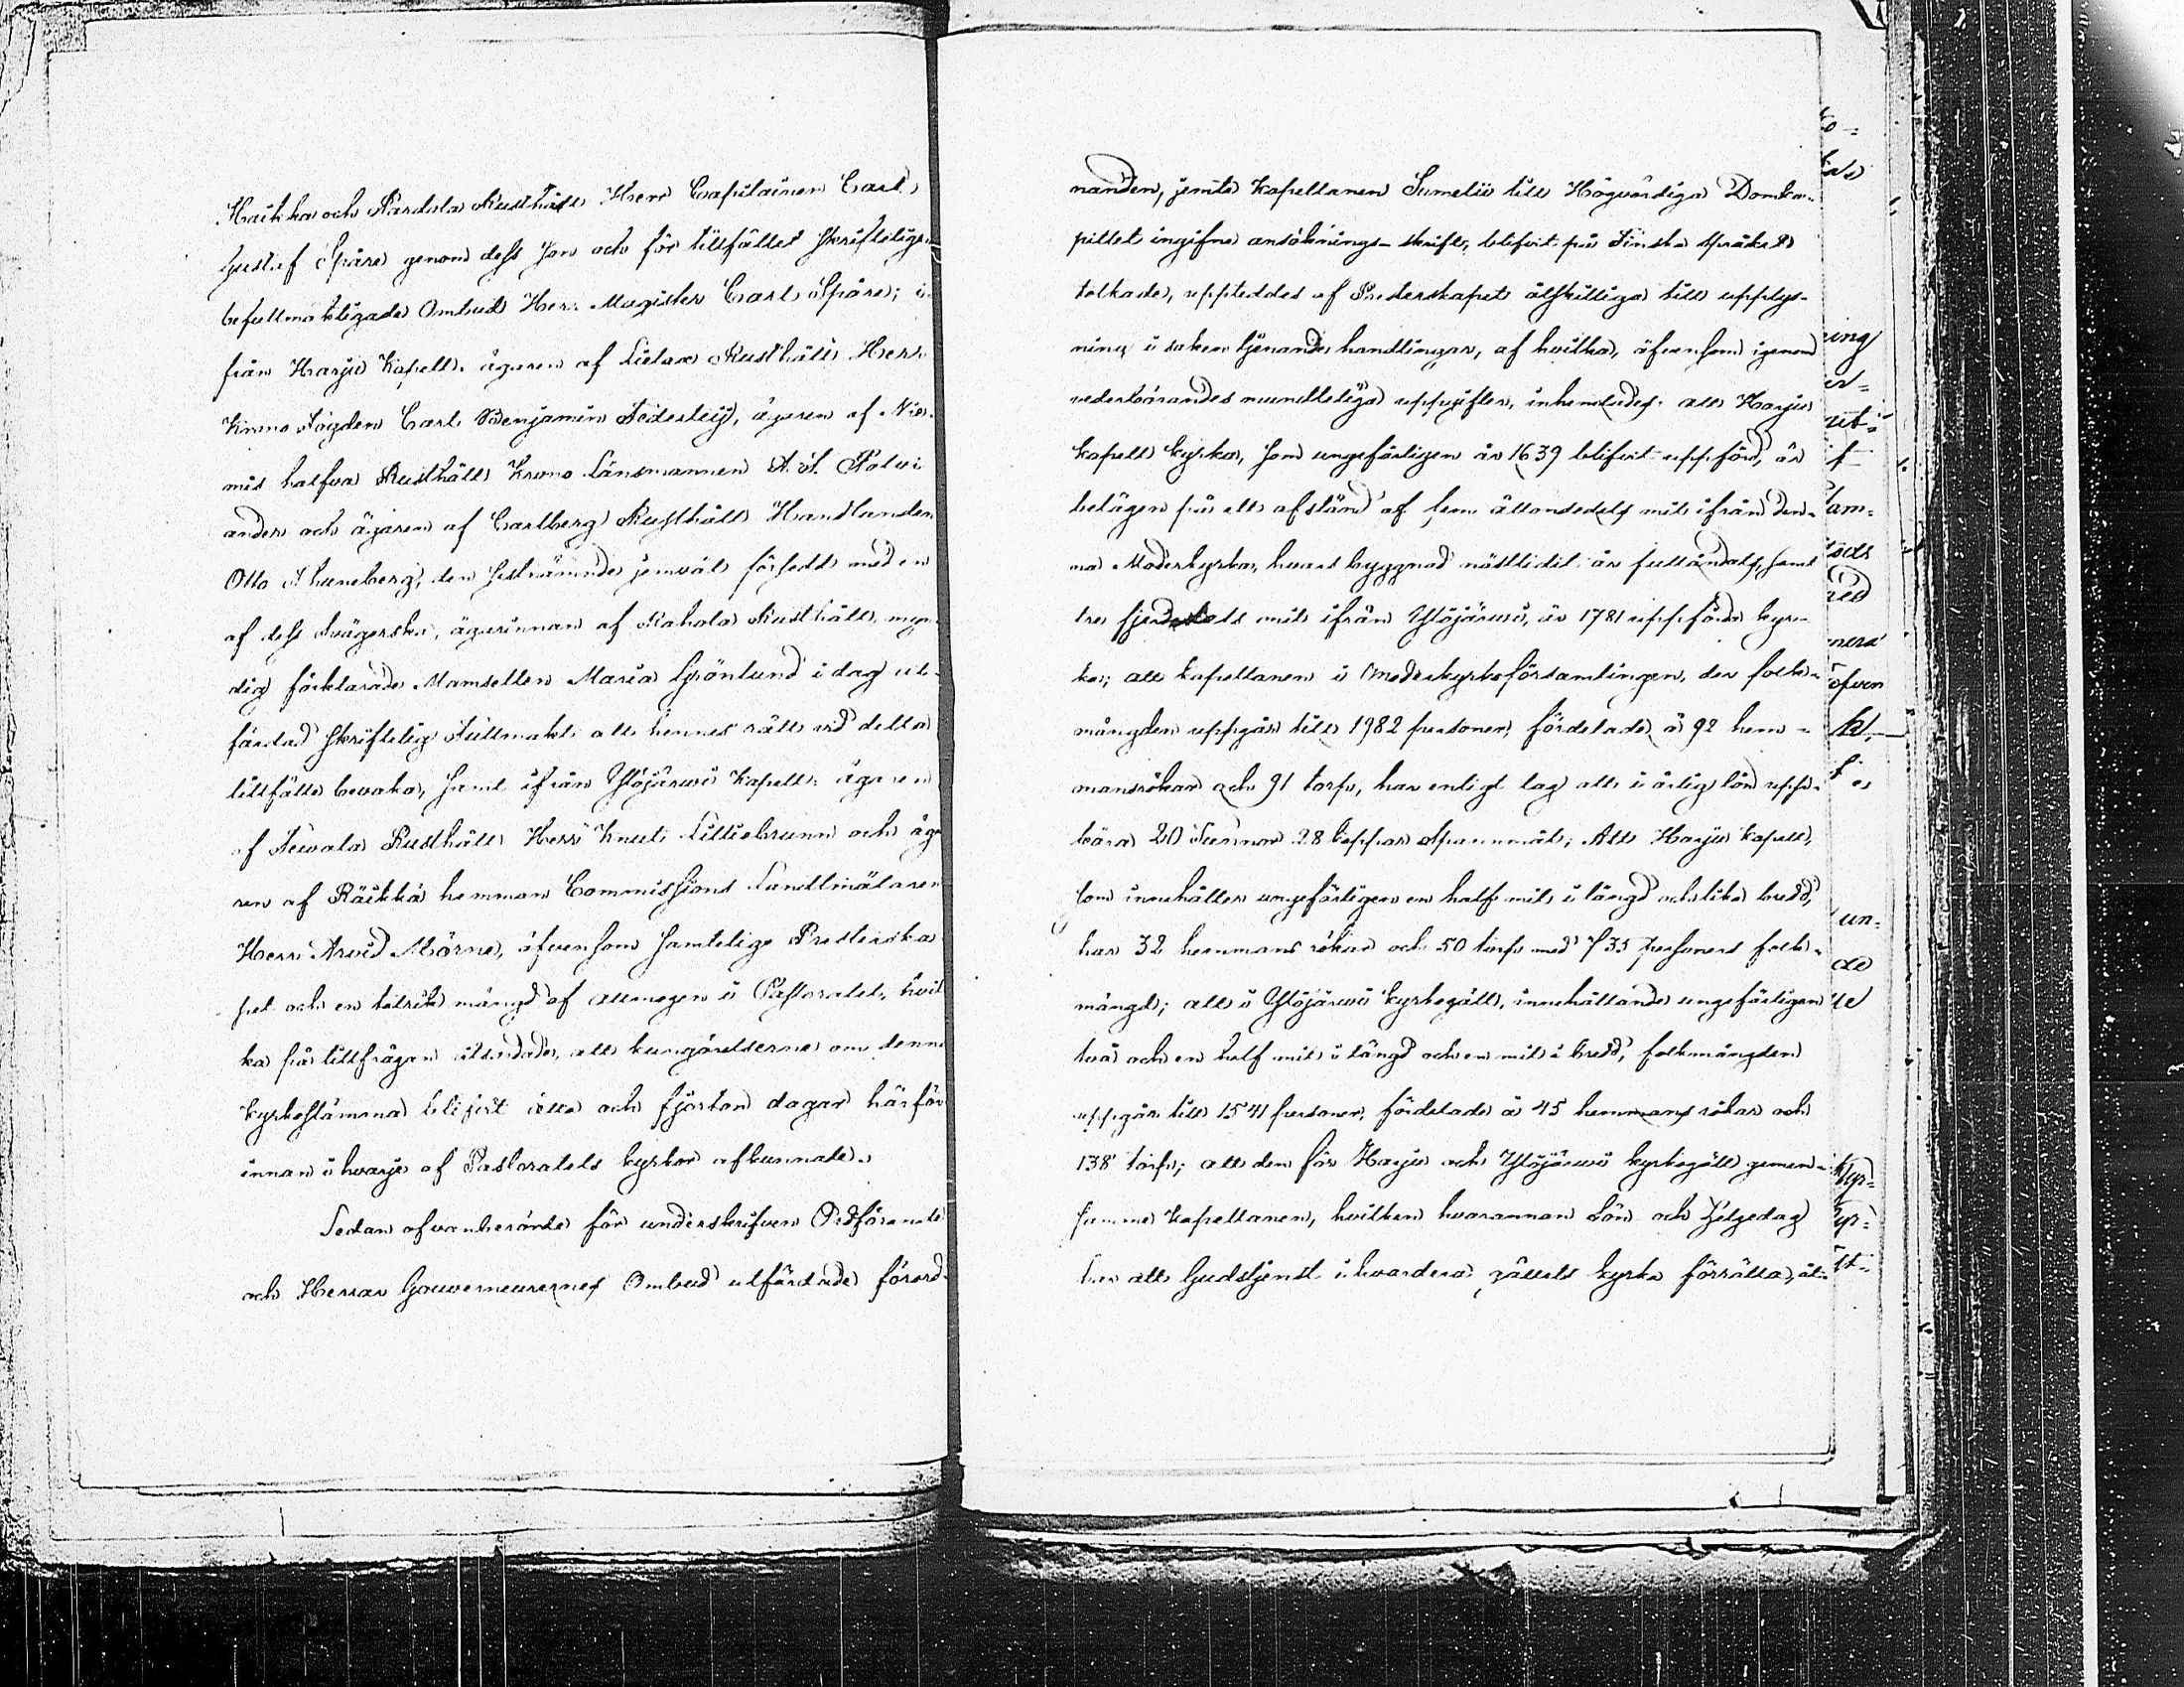 Haikka och Pardala Rusthåll Herr Capitainen Carl
Gustaf Spåre genom dess Son och för tillfället skrifteligen
befullmäktigade Ombud Herr Magister Carl Spåre;
från Harju Kapell: ägaren af Lielax Rusthåll Herr
Krono Fogden Carl Benjamin Federley, ägaren af Nie-
mis halfva Rusthåll Krono Länsmannen A. S. Polvi-
ander och ägaren af Carlberg Rusthåll Handlanden
Otto Thuneberg, den sistnämnde jemväl försedd med en
af dess Svägerska, ägarinnan af Rahola Rusthåll, myn-
dig förklarade Mamsellen Maria Grönlund i dag ut-
färdad skriftelig Fullmakt att hennes rätt vid detta
tillfälle bevaka, samt ifrån Ylöjärwi Kapell: ägaren
af Teivala Rusthåll Herr Knut Lilliebrunn och äga-
ren af Räikkä hemman Commissions Landtmätaren
Herr Arvid Mörne, äfvensom samtelige Presterska-
pet och en talrik mängd af allmogen i Pastoratet, hvil-
ka på tillfrågan , att kungörelserna om denna
kyrkostämma blifvit åtta och fjorton dagar härför-
innan i hvarje af Pastoratets kyrkor afkunnade.
Sedan ofvanberörde för underskrifven Ordförande
och Herrar Gouverneurernes Ombud utfärdade förord-
nanden, jemte Kapellanen Sumelii till Högvördiga Domka-
pitlet ingifne ansöknings-skrift, blifvit på Finska språket
tolkade, uppteddes af Presterskapet åtskillige till upplys-
ning i saken tjenande handlingar, af hvilka, äfvensom igenom
vederbörandes mundteliga uppgifter, inhemtades: att Harju
kapell kyrka, som ungefärligen år 1639 blifvit uppförd, är
belägen på ett afstånd af fem åttondedels mil ifrån den-
na Moderkyrka, hvars byggnad nästlidit år fulländats, samt
tre fjerdedels mil ifrån Ylöjärwi, år 1781 uppförda kyr-
ka; att kapellanen i Moderkyrkoförsamlingen, der folk-
mängden uppgår till 1982 personer, fördelade å 92 hem-
mansrökar och 91 torp, har enligt lag att i årlig lön upp-
bära 20 Tunnor 28 kappar Spannmål; Att Harju kapell,
som innehåller ungefärligen en half mil i längd och lika bredd,
har 32 hemmans rökar och 50 torp med 733 personers folk-
mängd; att i Ylöjärwi kyrkogäll, innehållande ungefärligen
två och en half mil i längd och en mil i bredd, folkmängden
uppgår till 1541 personer, fördelade å 45 hemmans rökar och
138 torp; att den för Harju och Ylöjärwi kyrkogäll gemen-
samme kapellanen, hvilken hvarannan Sön och Helgedag
har att Gudstjenst i hvardera gällets kyrka förrätta, åt-